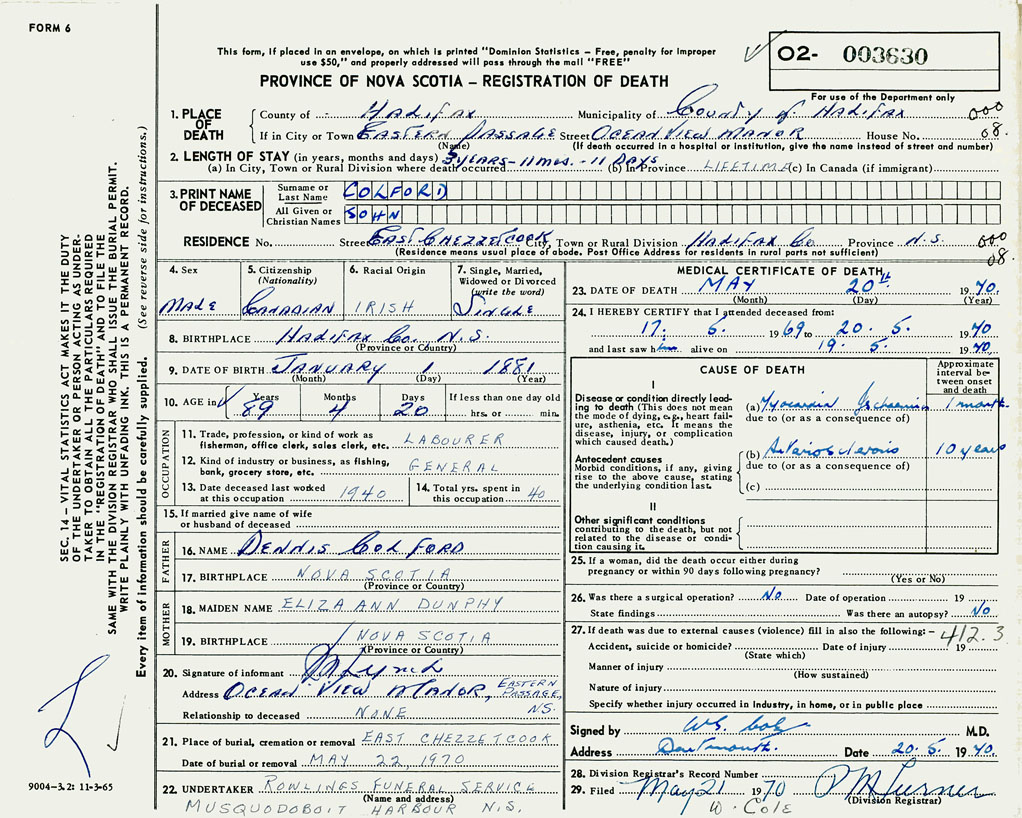 FORM 6
This form, if placed in an envelope, on which is printed "Dominion Statistics – Free, penalty for improper
use $50," and properly addressed will pass through the mail "FREE"
02- 003630
PROVINCE OF NOVA SCOTIA – REGISTRATION OF DEATH
For use of the Department only
1. PLACE OF DEATH { County of Halifax Municipality of County of Halifax 000
If in City or Town Eastern Passage Street Ocean View Manor House No. 08.
(Name) (If death occurred in a hospital or institution, give the name instead of street and number)
2. LENGTH OF STAY (in years, months and days) 3 years - 11 mos. - 11 Days
(a) In City, Town or Rural Division where death occurred (b) In Province LIFETIME (c) In Canada (if immigrant)
3. PRINT NAME OF DECEASED
Surname or Last Name COLFORD
All Given or Christian Names JOHN
RESIDENCE No. Street East Chezzetcook City, Town or Rural Division Halifax Co Province N.S. 000
(Residence means usual place of abode. Post Office Address for residents in rural parts not sufficient) 08.
4. Sex 5. Citizenship (Nationality) 6. Racial Origin 7. Single, Married, Widowed or Divorced (write the word)
Male Canadian IRISH Single
8. BIRTHPLACE Halifax Co. N.S.
(Province or Country)
9. DATE OF BIRTH January 1 1881
(Month) (Day) (Year)
10. AGE in Years Months Days If less than one day old
89 4 20 hrs. or min.
OCCUPATION
11. Trade, profession, or kind of work as fisherman, office clerk, sales clerk, etc. LABOURER
12. Kind of industry or business, as fishing, bank, grocery store, etc. GENERAL
13. Date deceased last worked at this occupation 1940 14. Total yrs. spent in this occupation 40
15. If married give name of wife
or husband of deceased
FATHER
16. NAME Dennis Colford
17. BIRTHPLACE NOVA SCOTIA
(Province or Country)
MOTHER
18. MAIDEN NAME ELIZA ANN DUNPHY
19. BIRTHPLACE NOVA SCOTIA
(Province or Country)
20. Signature of informant M Lynch
Address Ocean View Manor, EASTERN PASSAGE, N.S.
Relationship to deceased NONE
21. Place of burial, cremation or removal EAST CHEZZETCOOK
Date of burial or removal MAY 22, 1970
22. UNDERTAKER ROWLINGS FUNERAL SERVICE
(Name and address)
MUSQUODOBOIT HARBOUR N.S.
MEDICAL CERTIFICATE OF DEATH
23. DATE OF DEATH MAY 20th 1970.
(Month) (Day) (Year)
24. I HEREBY CERTIFY that I attended deceased from:
17. 6. 1969 to 20. 5. 1970
and last saw him alive on 19. 5. 1970.
CAUSE OF DEATH
Approximate interval between onset and death
I
Disease or condition directly leading to death (This does not mean the mode of dying, e.g., heart failure, asthenia, etc. It means the disease, injury, or complication which caused death.)
(a) Myocardial Ischaemia 1 month
due to (or as a consequence of)
Antecedent causes
Morbid conditions, if any, giving rise to the above cause, stating the underlying condition last.
(b) Arteriosclerosis 10 years
due to (or as a consequence of)
(c)
II
Other significant conditions
contributing to the death, but not related to the disease or condition causing it.
25. If a woman, did the death occur either during
pregnancy or within 90 days following pregnancy?
(Yes or No)
26. Was there a surgical operation? No Date of operation 19
State findings Was there an autopsy? No
27. If death was due to external causes (violence) fill in also the following: – 412.3
Accident, suicide or homicide? Date of injury 19
(State which)
Manner of injury
(How sustained)
Nature of injury
Specify whether injury occurred in industry, in home, or in public place
Signed by M.D.
Address Dartmouth. Date 20.5 1970.
28. Division Registrar's Record Number
29. Filed May 21 1970 P M Turner
(Division Registrar)
W. Cole
SEC. 14 – VITAL STATISTICS ACT MAKES IT THE DUTY
OF THE UNDERTAKER OR PERSON ACTING AS UNDER-
TAKER TO OBTAIN ALL THE PARTICULARS REQUIRED
IN THE "REGISTRATION OF DEATH" AND TO FILE THE
SAME WITH THE DIVISION REGISTRAR WHO SHALL ISSUE THE BURIAL PERMIT.
WRITE PLAINLY WITH UNFADING INK. THIS IS A PERMANENT RECORD.
Every item of information should be carefully supplied. (See reverse side for instructions.)
9004-3.2: 11-3-65